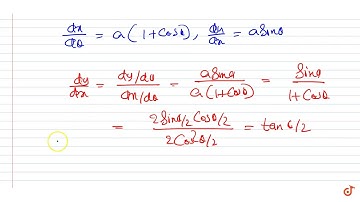 dx/dθ = a(1+cosθ), dy/dx = a sinθ
dy/dx = dy/dθ / dx/dθ = a sinθ / a(1+cosθ) = sinθ / 1+cosθ
= 2 sinθ/2 cosθ/2 / 2cos²θ/2 = tan θ/2